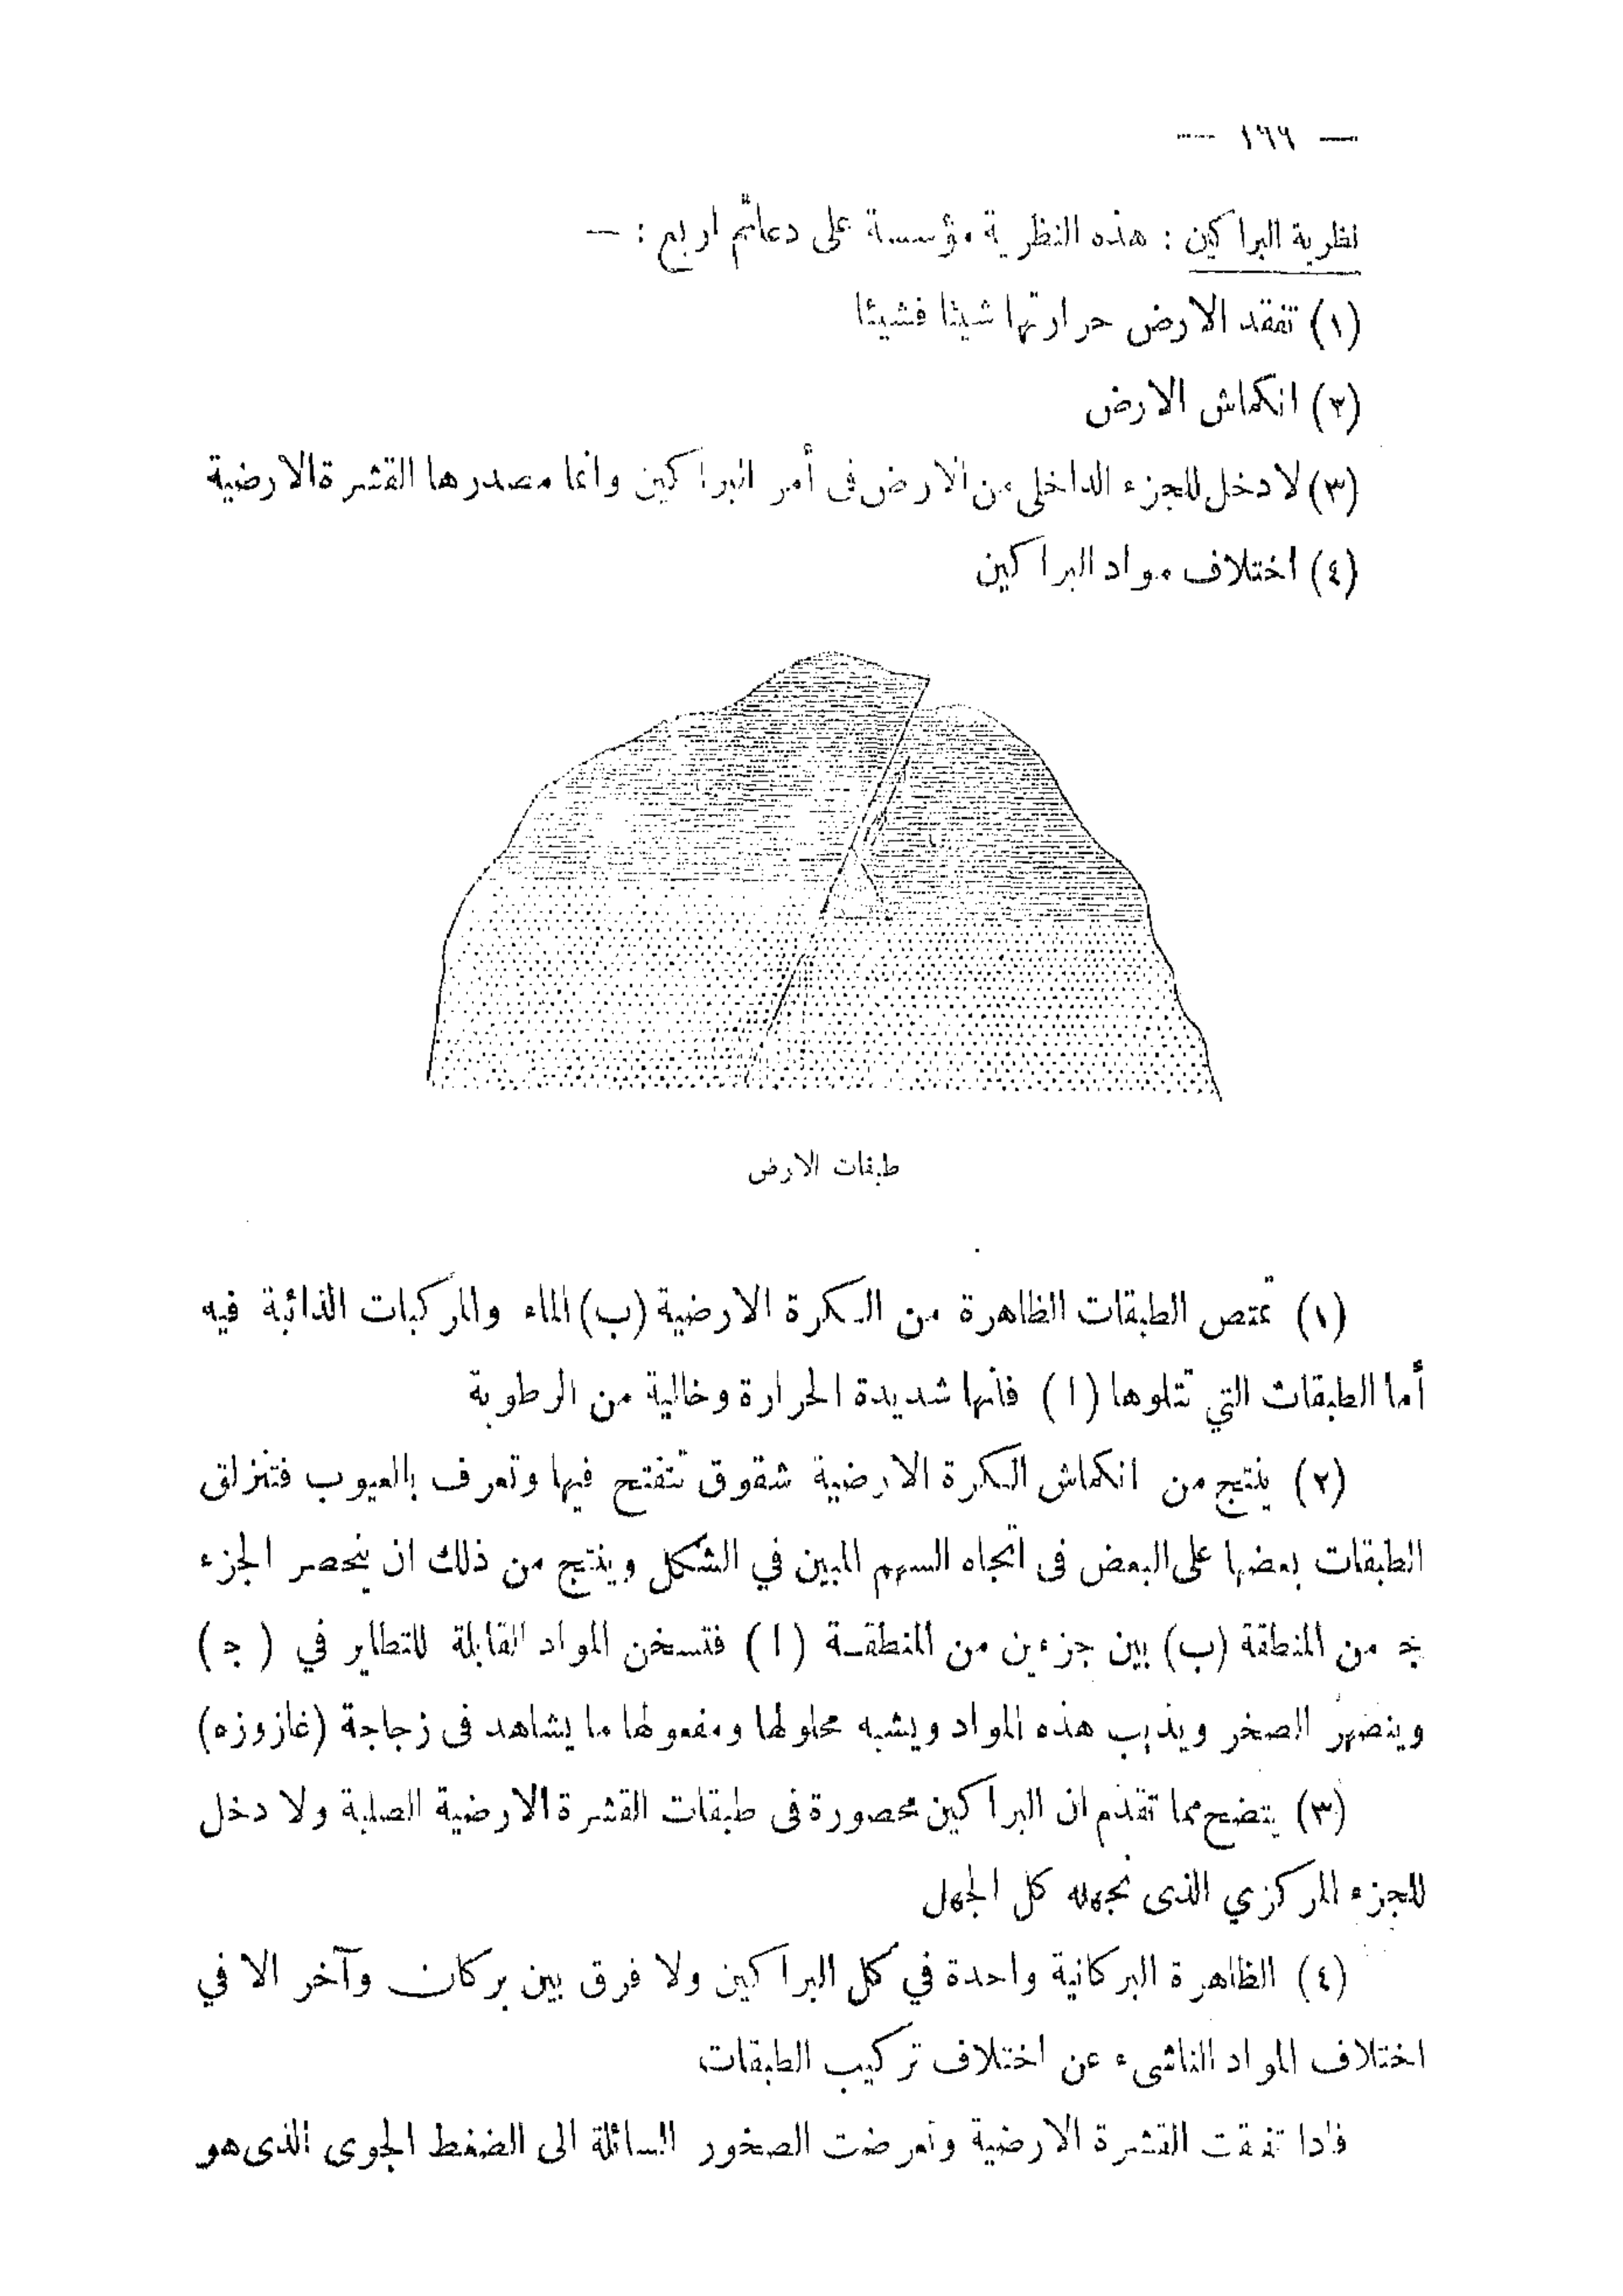 — ١٦٦ —
نظرية البراكين : هذه النظرية مؤسسة على دعائم اربع : —
(١) تفقد الارض حرارتها شيئا فشيئا
(٢) انكماش الارض
(٣) لا دخل للجزء الداخلى من الارض فى أمر البراكين وانما مصدرها القشرة الارضية
(٤) اختلاف مواد البراكين
طبقات الارض
(١) تمتص الطبقات الظاهرة من الكرة الارضية (ب) الماء والمركبات الذائبة فيه
أما الطبقات التي تتلوها (ا) فانها شديدة الحرارة وخالية من الرطوبة
(٢) ينتج من انكماش الكرة الارضية شقوق تتفتح فيها وتعرف بالعيوب فتنزلق
الطبقات بعضها على البعض فى اتجاه السهم المبين في الشكل وينتج من ذلك ان ينحصر الجزء
ج من المنطقة (ب) بين جزءين من المنطقة (ا) فتسخن المواد القابلة للتطاير في (ج)
وينصهر الصخر ويذيب هذه المواد ويشبه محلولها ومفعولها ما يشاهد فى زجاجة (غازوزه)
(٣) يتضح مما تقدم ان البراكين محصورة فى طبقات القشرة الارضية الصلبة ولا دخل
للجزء المركزي الذى نجهله كل الجهل
(٤) الظاهرة البركانية واحدة في كل البراكين ولا فرق بين بركان وآخر الا في
اختلاف المواد الناشىء عن اختلاف تركيب الطبقات
فاذا تفتقت القشرة الارضية وتعرضت الصخور السائلة الى الضغط الجوى الذى هو